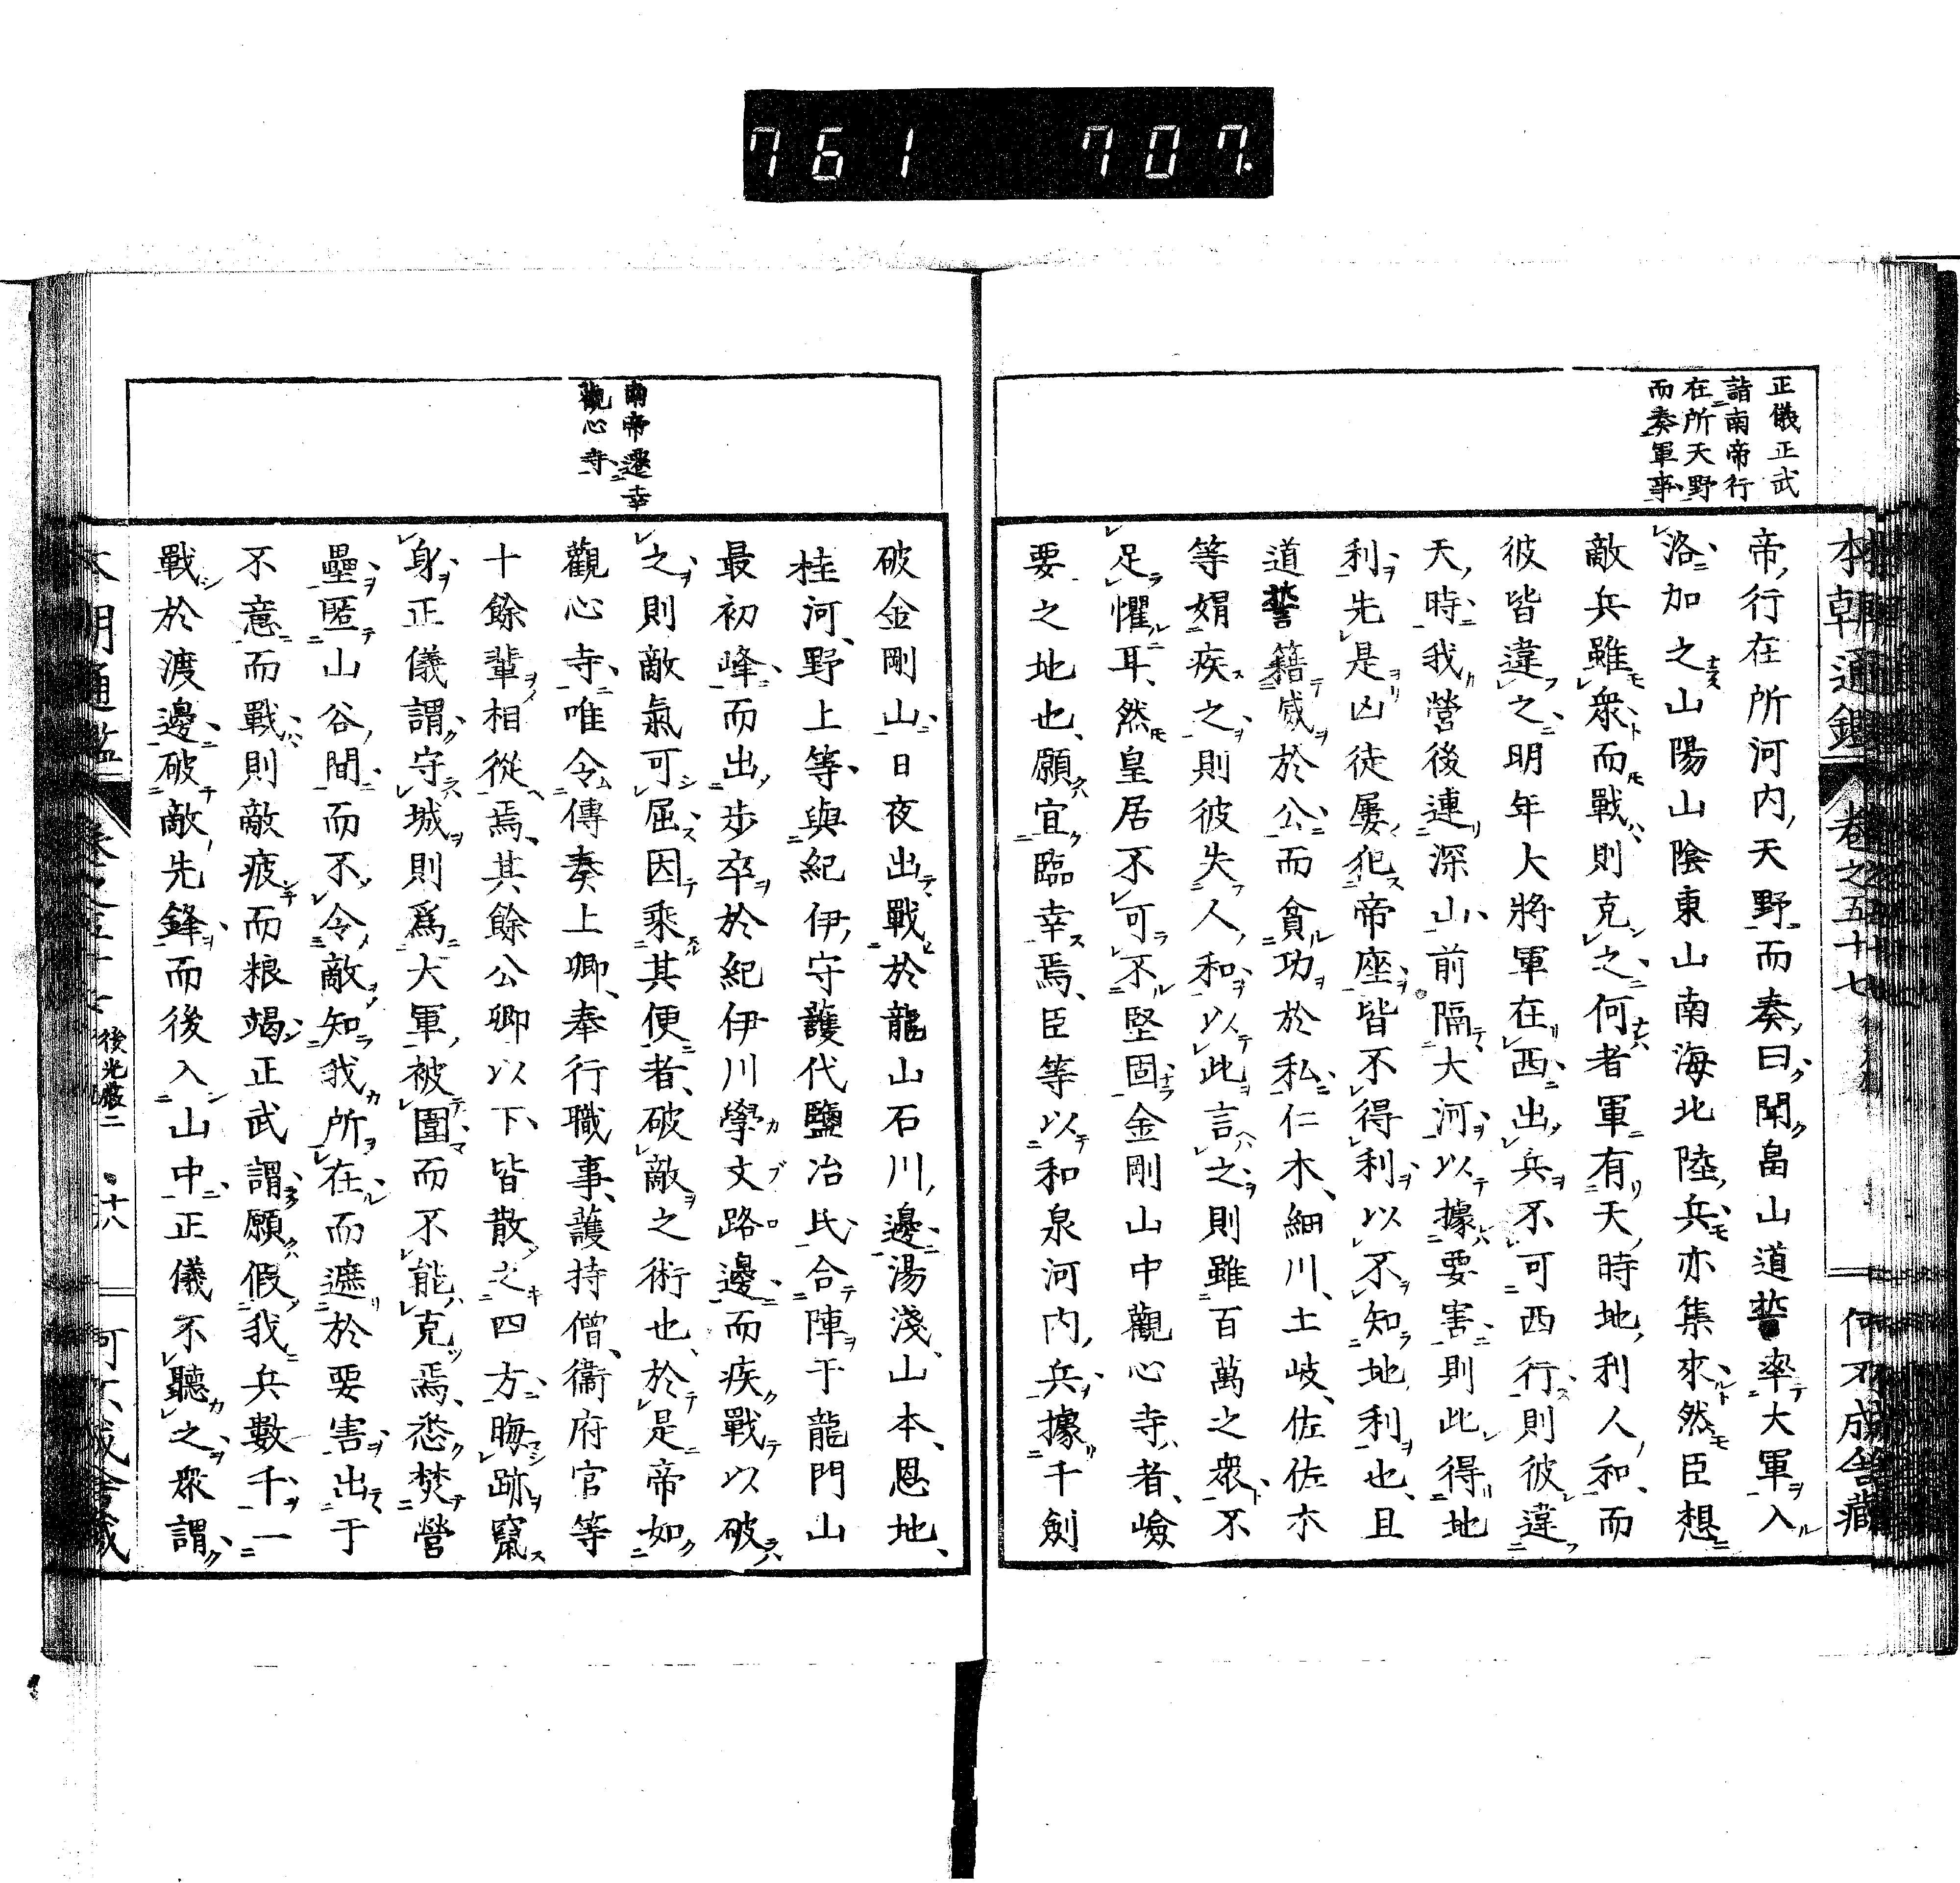 761 707.
本朝通鑑 卷之五十七 何不成舎藏
正儀正武
詣南帝行
在所天野
而奏軍事
帝行在所河内天野而奏曰聞畠山道誓率大軍入
洛加之山陽山陰東山南海北陸兵亦集來然臣想
敵兵雖衆而戰則克之何者軍有天時地利人和而
彼皆違之明年大將軍在西出兵不可西行則彼違
天時我營後連深山前隔大河以據要害則此得地
利先是凶徒屢犯帝座皆不得利以不知地利也且
道誓籍威於公而貪功於私仁木細川土岐佐佐木
等娟疾之則彼失人和以此言之則雖百萬之衆不
足懼耳然皇居不可不堅固金剛山中觀心寺者嶮
要之地也願宜臨幸焉臣等以和泉河内兵據千劍
南帝遷幸
觀心寺
破金剛山日夜出戰於龍山石川邊湯淺山本恩地
桂河野上等與紀伊守護代鹽冶氏合陣于龍門山
最初峰而出步卒於紀伊川學文路邊而疾戰以破
之則敵氣可屈因乘其便者破敵之術也於是帝如
觀心寺唯令傳奏上卿奉行職事護持僧衞府官等
十餘輩相從焉其餘公卿以下皆散之四方晦跡竄
身正儀謂守城則爲大軍被圍而不能克焉悉焚營
壘匿山谷間而不令敵知我所在而遮於要害出于
不意而戰則敵疲而粮竭正武謂願假我兵數千一
戰於渡邊破敵先鋒而後入山中正儀不聽之衆謂
後光嚴二 十八